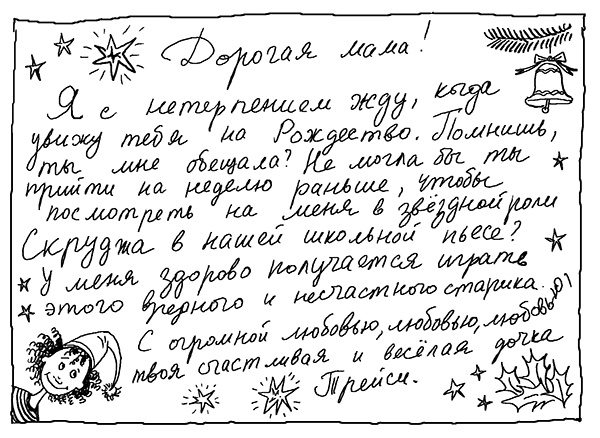 Дорогая мама!
Я с нетерпением жду, когда
увижу тебя на Рождество. Помнишь,
ты мне обещала? Не могла бы ты
прийти на неделю раньше, чтобы
посмотреть на меня в звёздной роли
Скруджа в нашей школьной пьесе?
У меня здорово получается играть
этого вредного и несчастного старика.
С огромной любовью, любовью, любовью,
твоя счастливая и весёлая дочка
Трейси.